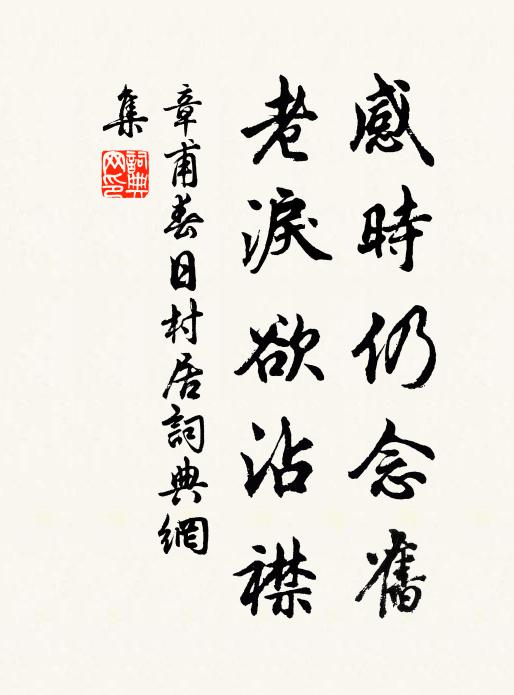 感時仍念舊
老淚欲沾襟
章甫春日村居詞典網
集
詞典
网印